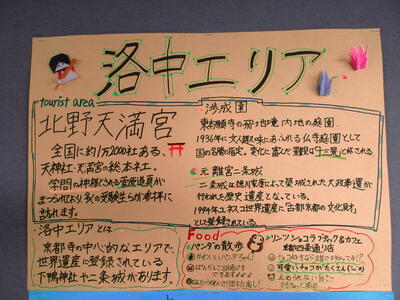 洛中エリア
tourist area
北野天満宮
全国に約1万2000社ある、
天神社・天満宮の総本社。
学問の神様とされる菅原道真が
まつられており、多くの受験生らが参拝に
訪れます。
洛中エリアとは
京都市の中心的なエリアで、
世界遺産に登録されている
下鴨神社や二条城があります。
渉成園
東本願寺の飛地境内地の庭園。
1936年に文人趣味にあふれる仏寺庭園として
国の名勝に指定。変化に富んだ景観は"十三景"と称される
元離宮二条城
二条城は徳川家康によって築城された大政奉還が
行われた歴史遺産となっている。
1994年ユネスコ世界遺産に「古都京都の文化財」
として登録されている
Food
パンダの散歩
リンツ ショコラ ブティック&カフェ
京都四条通り店
可愛いチョコがたくさん(^ω^)